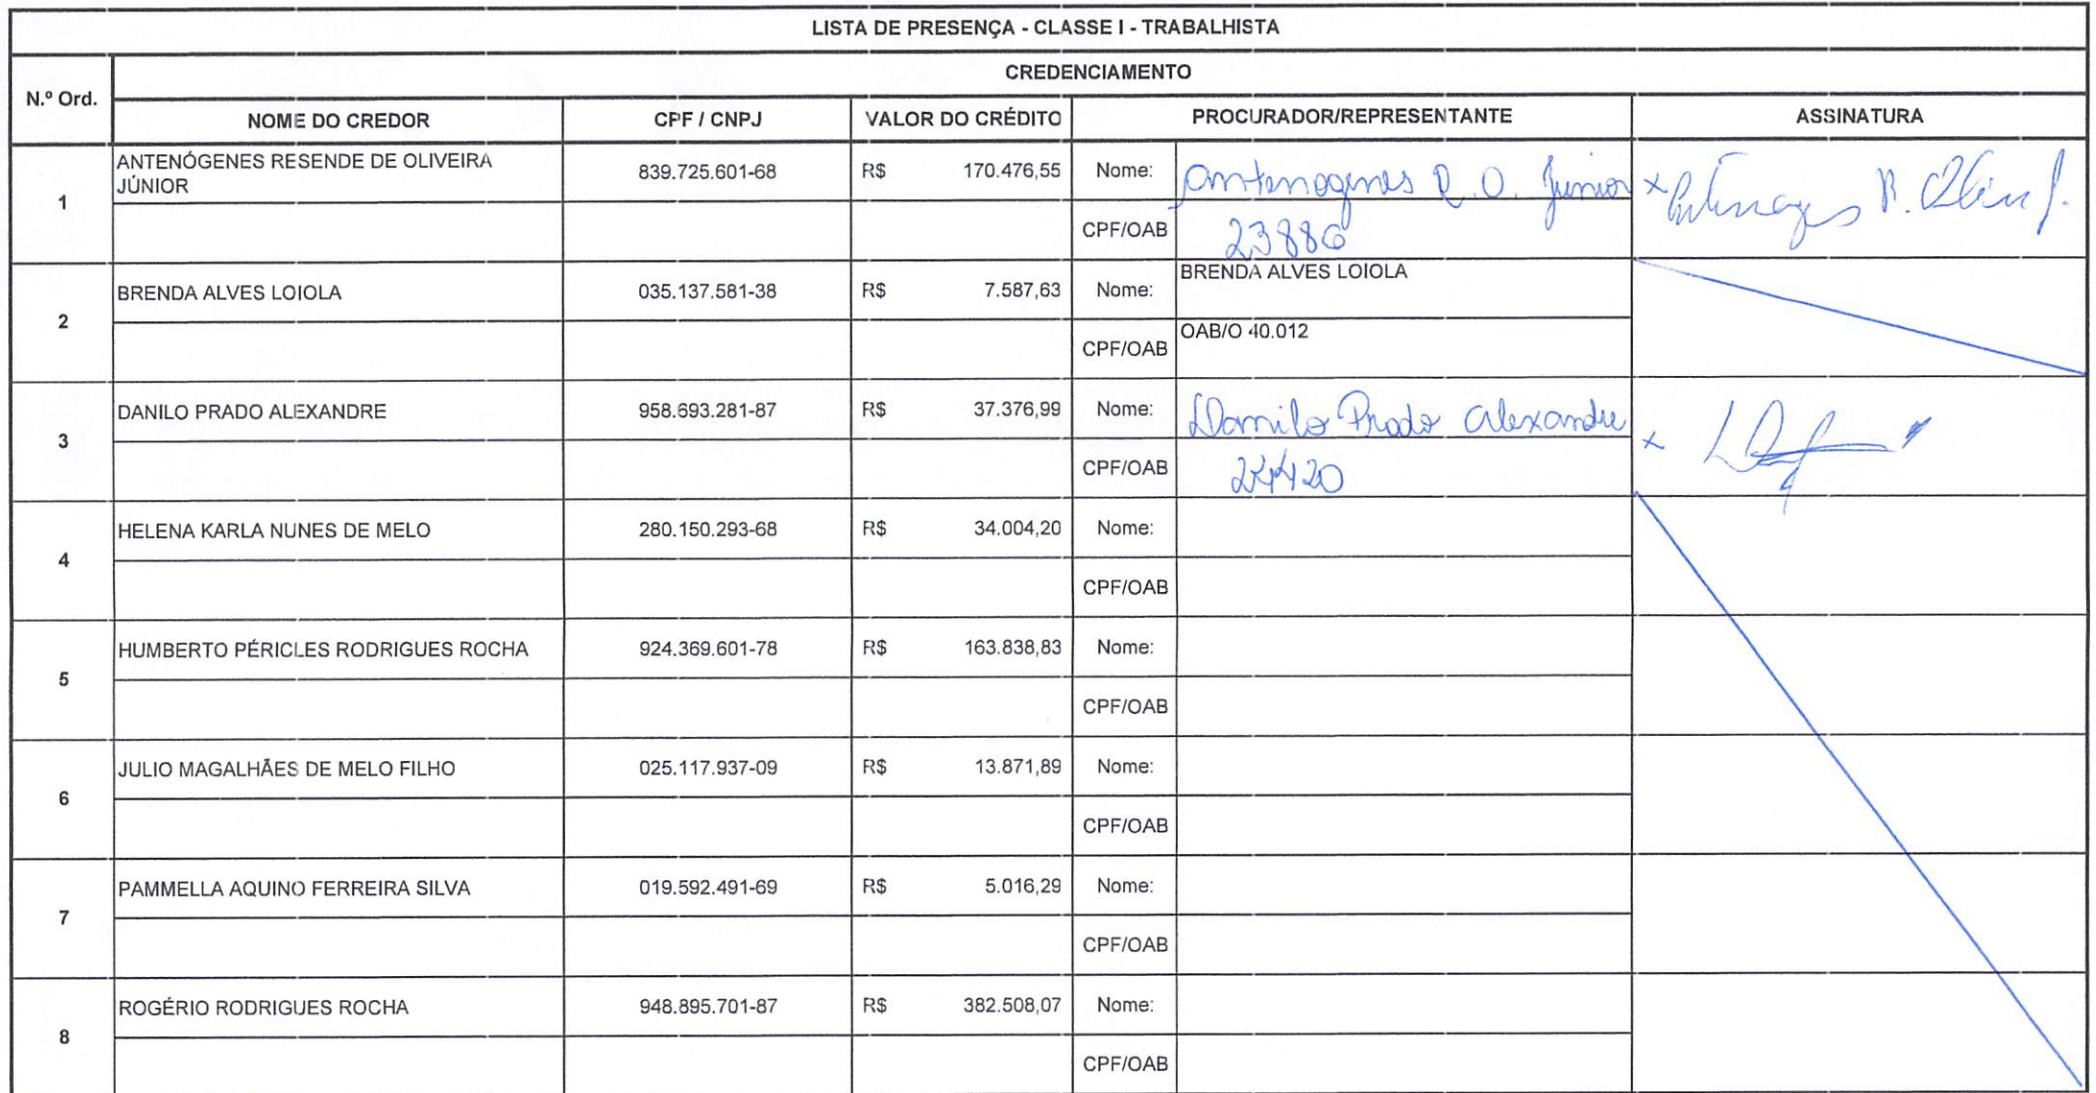 LISTA DE PRESENÇA - CLASSE I - TRABALHISTA
CREDENCIAMENTO
N.º Ord.
NOME DO CREDOR CPF / CNPJ VALOR DO CRÉDITO PROCURADOR/REPRESENTANTE ASSINATURA
1 ANTENÓGENES RESENDE DE OLIVEIRA JÚNIOR 839.725.601-68 R$ 170.476,55 Nome: Antenogenes R. O. Junior x
CPF/OAB 23886
2 BRENDA ALVES LOIOLA 035.137.581-38 R$ 7.587,63 Nome: BRENDA ALVES LOIOLA
CPF/OAB OAB/O 40.012
3 DANILO PRADO ALEXANDRE 958.693.281-87 R$ 37.376,99 Nome: Danilo Prado Alexandre x
CPF/OAB
4 HELENA KARLA NUNES DE MELO 280.150.293-68 R$ 34.004,20 Nome:
CPF/OAB
5 HUMBERTO PÉRICLES RODRIGUES ROCHA 924.369.601-78 R$ 163.838,83 Nome:
CPF/OAB
6 JULIO MAGALHÃES DE MELO FILHO 025.117.937-09 R$ 13.871,89 Nome:
CPF/OAB
7 PAMMELLA AQUINO FERREIRA SILVA 019.592.491-69 R$ 5.016,29 Nome:
CPF/OAB
8 ROGÉRIO RODRIGUES ROCHA 948.895.701-87 R$ 382.508,07 Nome:
CPF/OAB